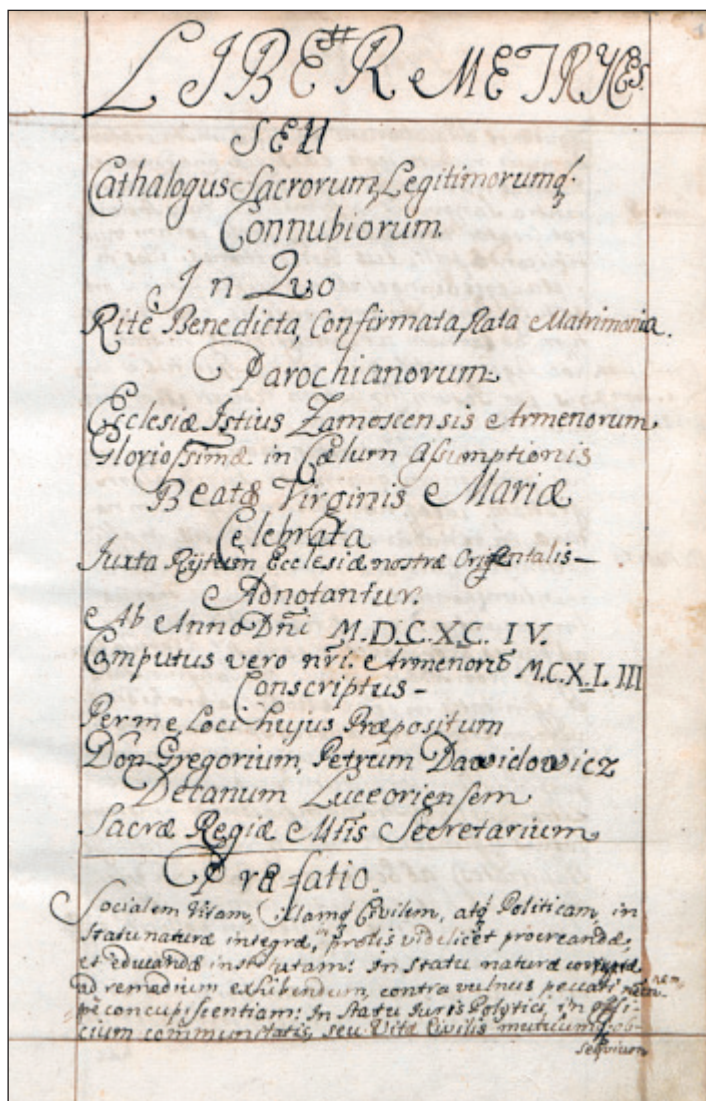 LIBER METRYCES.
SEU
Cathalogus Sacrorum, Legitimorumq;
Connubiorum
In Quo
Rite Benedicta, Confirmata, Rata Matrimonia.
Parochianorum
Ecclesiæ Istius Zamoscensis Armenorum
Gloriosissimæ in Cælum Assumptionis
Beatæ Virginis Mariæ
Celebrata
Juxta Rÿtum Ecclesiæ nostræ Orientalis
Adnotantur.
Ab Anno Dni M.D.C.XC.IV.
Computus vero nri. Armenorũ M.C.X.L.III
Conscriptus
Per me, Loci hujus Præpositum
Don Gregorium, Petrum Dawidowicz
Decanum Luceoriensem
Sacræ Regiæ Mtis Secretarium
Præfatio.
Socialem Vitam, illamq; Civilem, atq; Politicam, in
statu naturæ integræ, prolis videlicet procreandæ,
et educandæ institutam: In statu naturæ corruptæ
ad remedium exhibendum, contra vulnus peccati nem
pe concupiscentiam: In Statu Iuris Polytici, in offi-
cium communitatis, seu Vitæ Civilis mutuumq; ob-
sequium